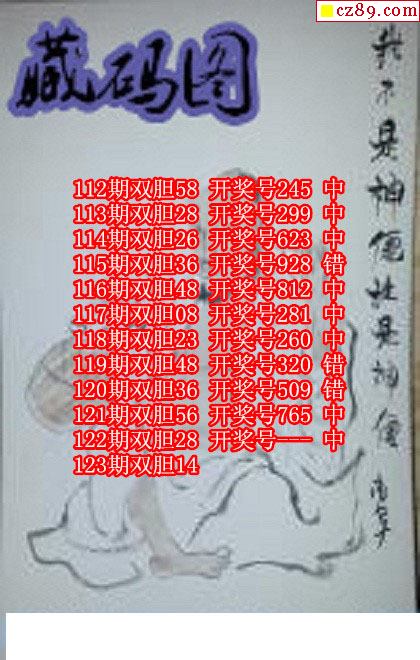 cz89.com
藏码图
112期双胆58 开奖号245 中
113期双胆28 开奖号299 中
114期双胆26 开奖号623 中
115期双胆36 开奖号928 错
116期双胆48 开奖号812 中
117期双胆08 开奖号281 中
118期双胆23 开奖号260 中
119期双胆48 开奖号320 错
120期双胆36 开奖号509 错
121期双胆56 开奖号765 中
122期双胆28 开奖号--- 中
123期双胆14
我不是神仙 是神仙